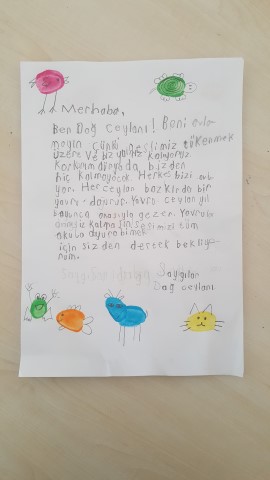 Merhaba,
Ben Dağ ceylanı! Beni avla
mayın çünkü neslimiz tükenmek
üzere ve biz yalnız kalıyoruz.
Korkuyorum dünyada bizden
hiç kalmayacak. Herkes bizi avlı
yor. Her ceylan bazkırda bir
yavru doğurur. Yavru ceylan yıl
boyunca anasıyla gezer. Yavrular
annesiz kalmasın sesimizi tüm
okula duyurabilmek
için sizden destek bekliyo
rum.
Saygılar
Dağ ceylanı